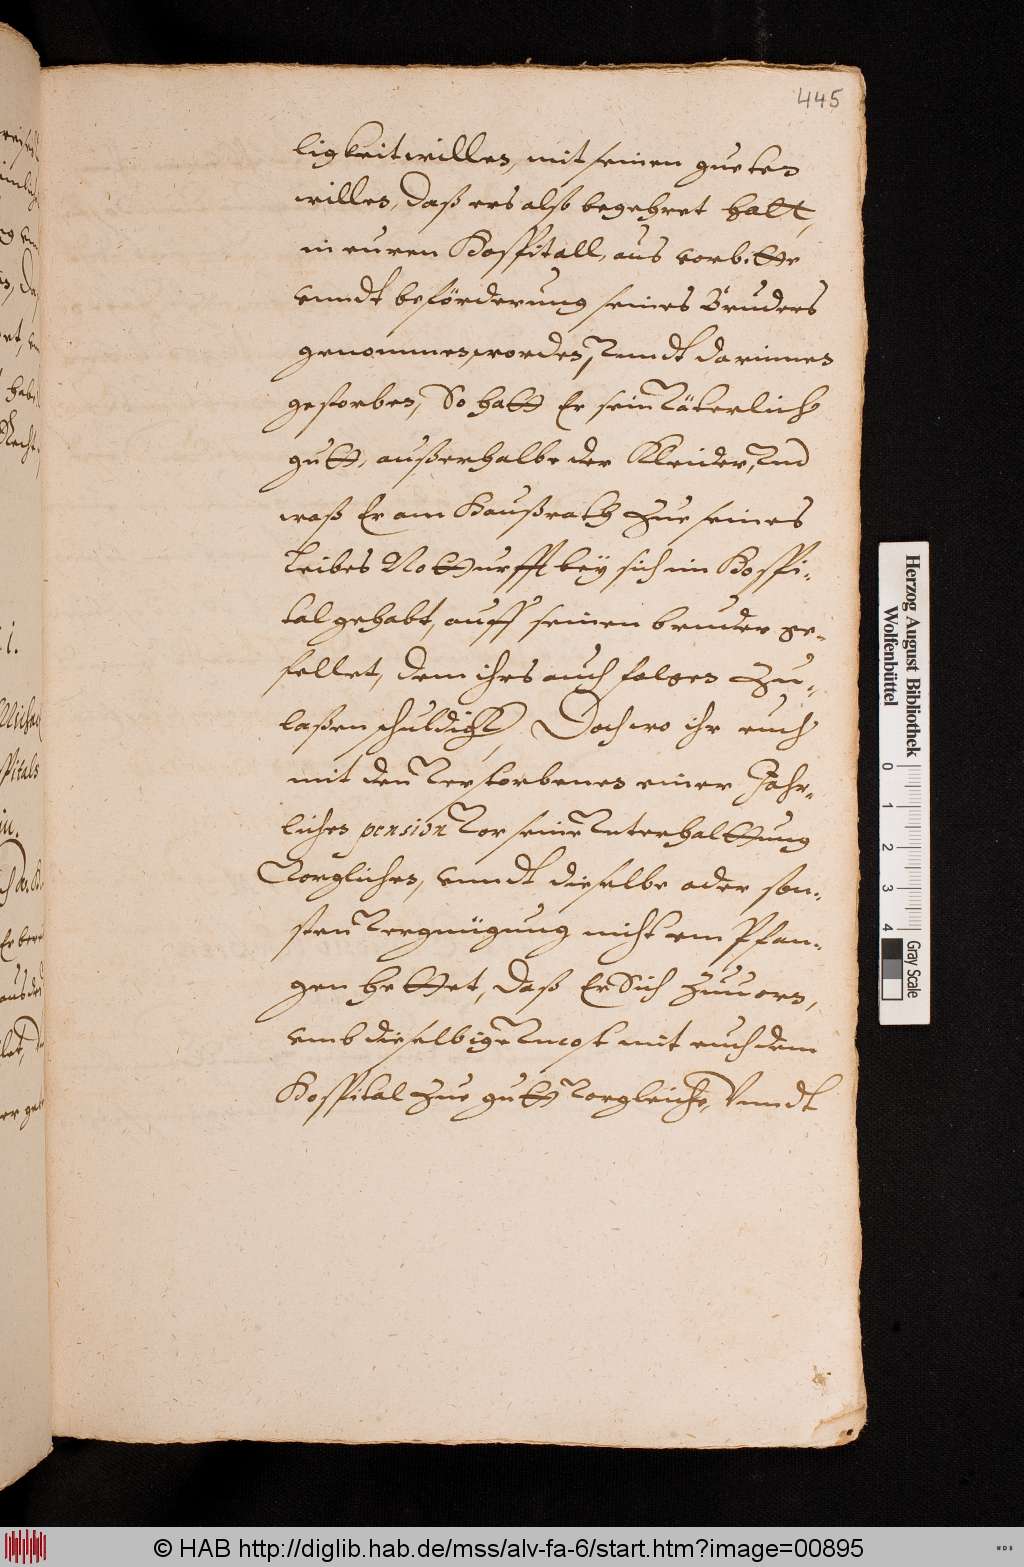 445
ligkeit willen, mit seinen gueten
willen, daß ers also begehret hatt,
in euren Hospitall, aus vorbitte
vnndt beförderung seines Bruders
genommen worden, Vnndt darinnen
gestorben, So hatt Er sein Väterlich
gutt, außerhalb der Kleider, Vnd
waß Er am Haußrath zue seines
Leibes Notturfft bey sich im Hospi-
tal gehabt, auff seinen bruder ge-
fellet, dem ihrs auch folgen zu-
laßen schuldig, Doch wo ihr euch
mit den Verstorbenen einer Jahr-
lichen pension Vor seine Vnterhalttung
Vorglichen, vnndt dieselbe oder son-
sten Vergnügung nicht empfan-
gen hettet, daß Er Sich zuuorn,
vmb dieselbige Vncost mit euch dem
Hospital zue gutt Vorgleiche, Vnndt
Herzog August Bibliothek
Wolfenbüttel
0 1 2 3 4
Gray Scale
© HAB http://diglib.hab.de/mss/alv-fa-6/start.htm?image=00895